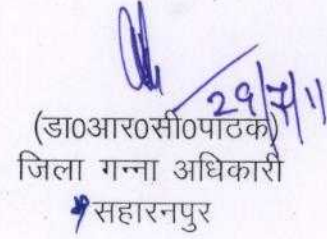 29/7/11
(डा0आर0सी0पाठक)
जिला गन्ना अधिकारी
सहारनपुर